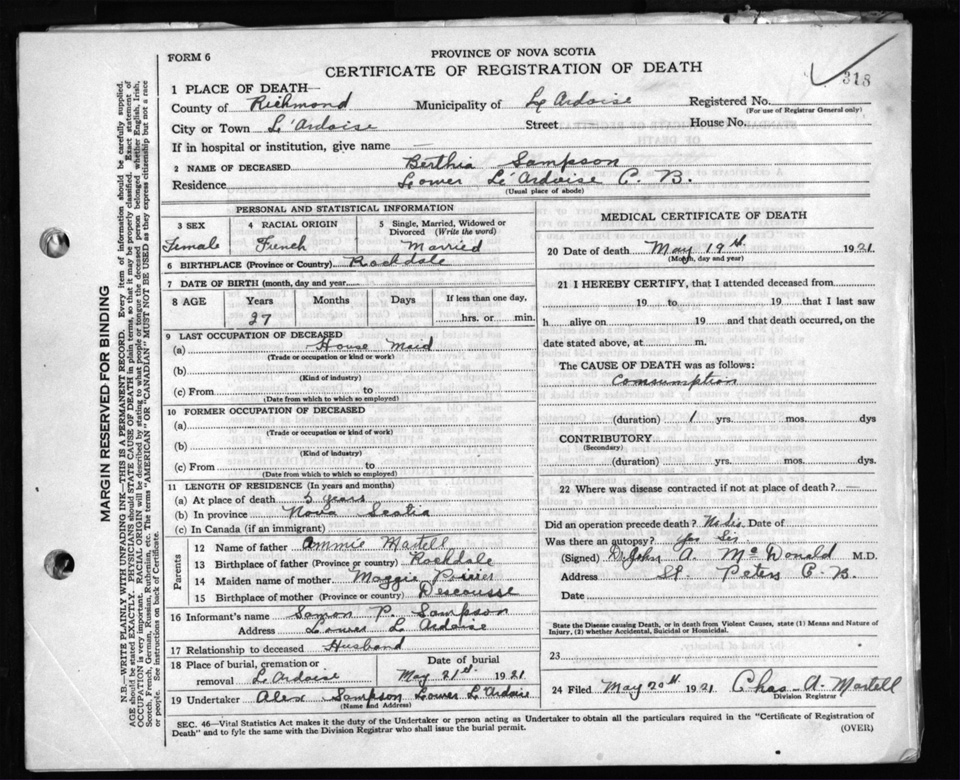 FORM 6
PROVINCE OF NOVA SCOTIA
CERTIFICATE OF REGISTRATION OF DEATH
318
1 PLACE OF DEATH—
County of Richmond Municipality of L'Ardoise Registered No.
(For use of Registrar General only)
City or Town L'Ardoise Street House No.
If in hospital or institution, give name —
2 NAME OF DECEASED Berthia Sampson
Residence Lower L'Ardoise C. B.
(Usual place of abode)
PERSONAL AND STATISTICAL INFORMATION
3 SEX 4 RACIAL ORIGIN 5 Single, Married, Widowed or Divorced (Write the word)
Female French Married
6 BIRTHPLACE (Province or Country) Rockdale
7 DATE OF BIRTH (month, day and year)
8 AGE Years Months Days If less than one day,
27 hrs. or min.
9 LAST OCCUPATION OF DECEASED
(a) House Maid
(Trade or occupation or kind of work)
(b)
(Kind of industry)
(c) From to
(Date from which to which so employed)
10 FORMER OCCUPATION OF DECEASED
(a)
(Trade or occupation or kind of work)
(b)
(Kind of industry)
(c) From to
(Date from which to which so employed)
11 LENGTH OF RESIDENCE (In years and months)
(a) At place of death 5 years
(b) In province Nova Scotia
(c) In Canada (if an immigrant)
Parents
12 Name of father Ammie Martell
13 Birthplace of father (Province or country) Rockdale
14 Maiden name of mother Maggie
15 Birthplace of mother (Province or country) Descousse
16 Informant's name Samon P. Sampson
Address Lower L Ardoise
17 Relationship to deceased Husband
18 Place of burial, cremation or removal L Ardoise
Date of burial May 21st. 1921
19 Undertaker Alex Sampson Lower L'Ardoise
(Name and Address)
MEDICAL CERTIFICATE OF DEATH
20 Date of death May 19th 1921
(Month, day and year)
21 I HEREBY CERTIFY, that I attended deceased from
19 to 19 that I last saw
h alive on 19 and that death occurred, on the
date stated above, at m.
The CAUSE OF DEATH was as follows:
Comsumption
(duration) 1 yrs. mos. dys
CONTRIBUTORY
(Secondary)
(duration) yrs. mos. dys.
22 Where was disease contracted if not at place of death? —
Did an operation precede death? Date of
Was there an autopsy?
(Signed) Dr John A. McDonald M.D.
Address St. Peters C. B.
Date
State the Disease causing Death, or in death from Violent Causes, state (1) Means and Nature of
Injury, (2) whether Accidental, Suicidal or Homicidal.
23
24 Filed May 20th. 1921 Chas. A. Martell
Division Registrar
SEC. 46—Vital Statistics Act makes it the duty of the Undertaker or person acting as Undertaker to obtain all the particulars required in the "Certificate of Registration of
Death" and to fyle the same with the Division Registrar who shall issue the burial permit.
(OVER)
MARGIN RESERVED FOR BINDING
N.B.—WRITE PLAINLY WITH UNFADING INK—THIS IS A PERMANENT RECORD. Every item of information should be carefully supplied.
AGE should be stated EXACTLY. PHYSICIANS should STATE CAUSE OF DEATH in plain terms, so that it may be properly classified. Exact statement of
OCCUPATION is very important. RACIAL ORIGIN will be described by stating to what people or tongue the deceased person belonged whether English, Irish,
Scotch, French, German, Russian, Ruthenian, etc. The terms "AMERICAN" OR "CANADIAN" MUST NOT BE USED as they express citizenship but not a race
or people. See instructions on back of Certificate.